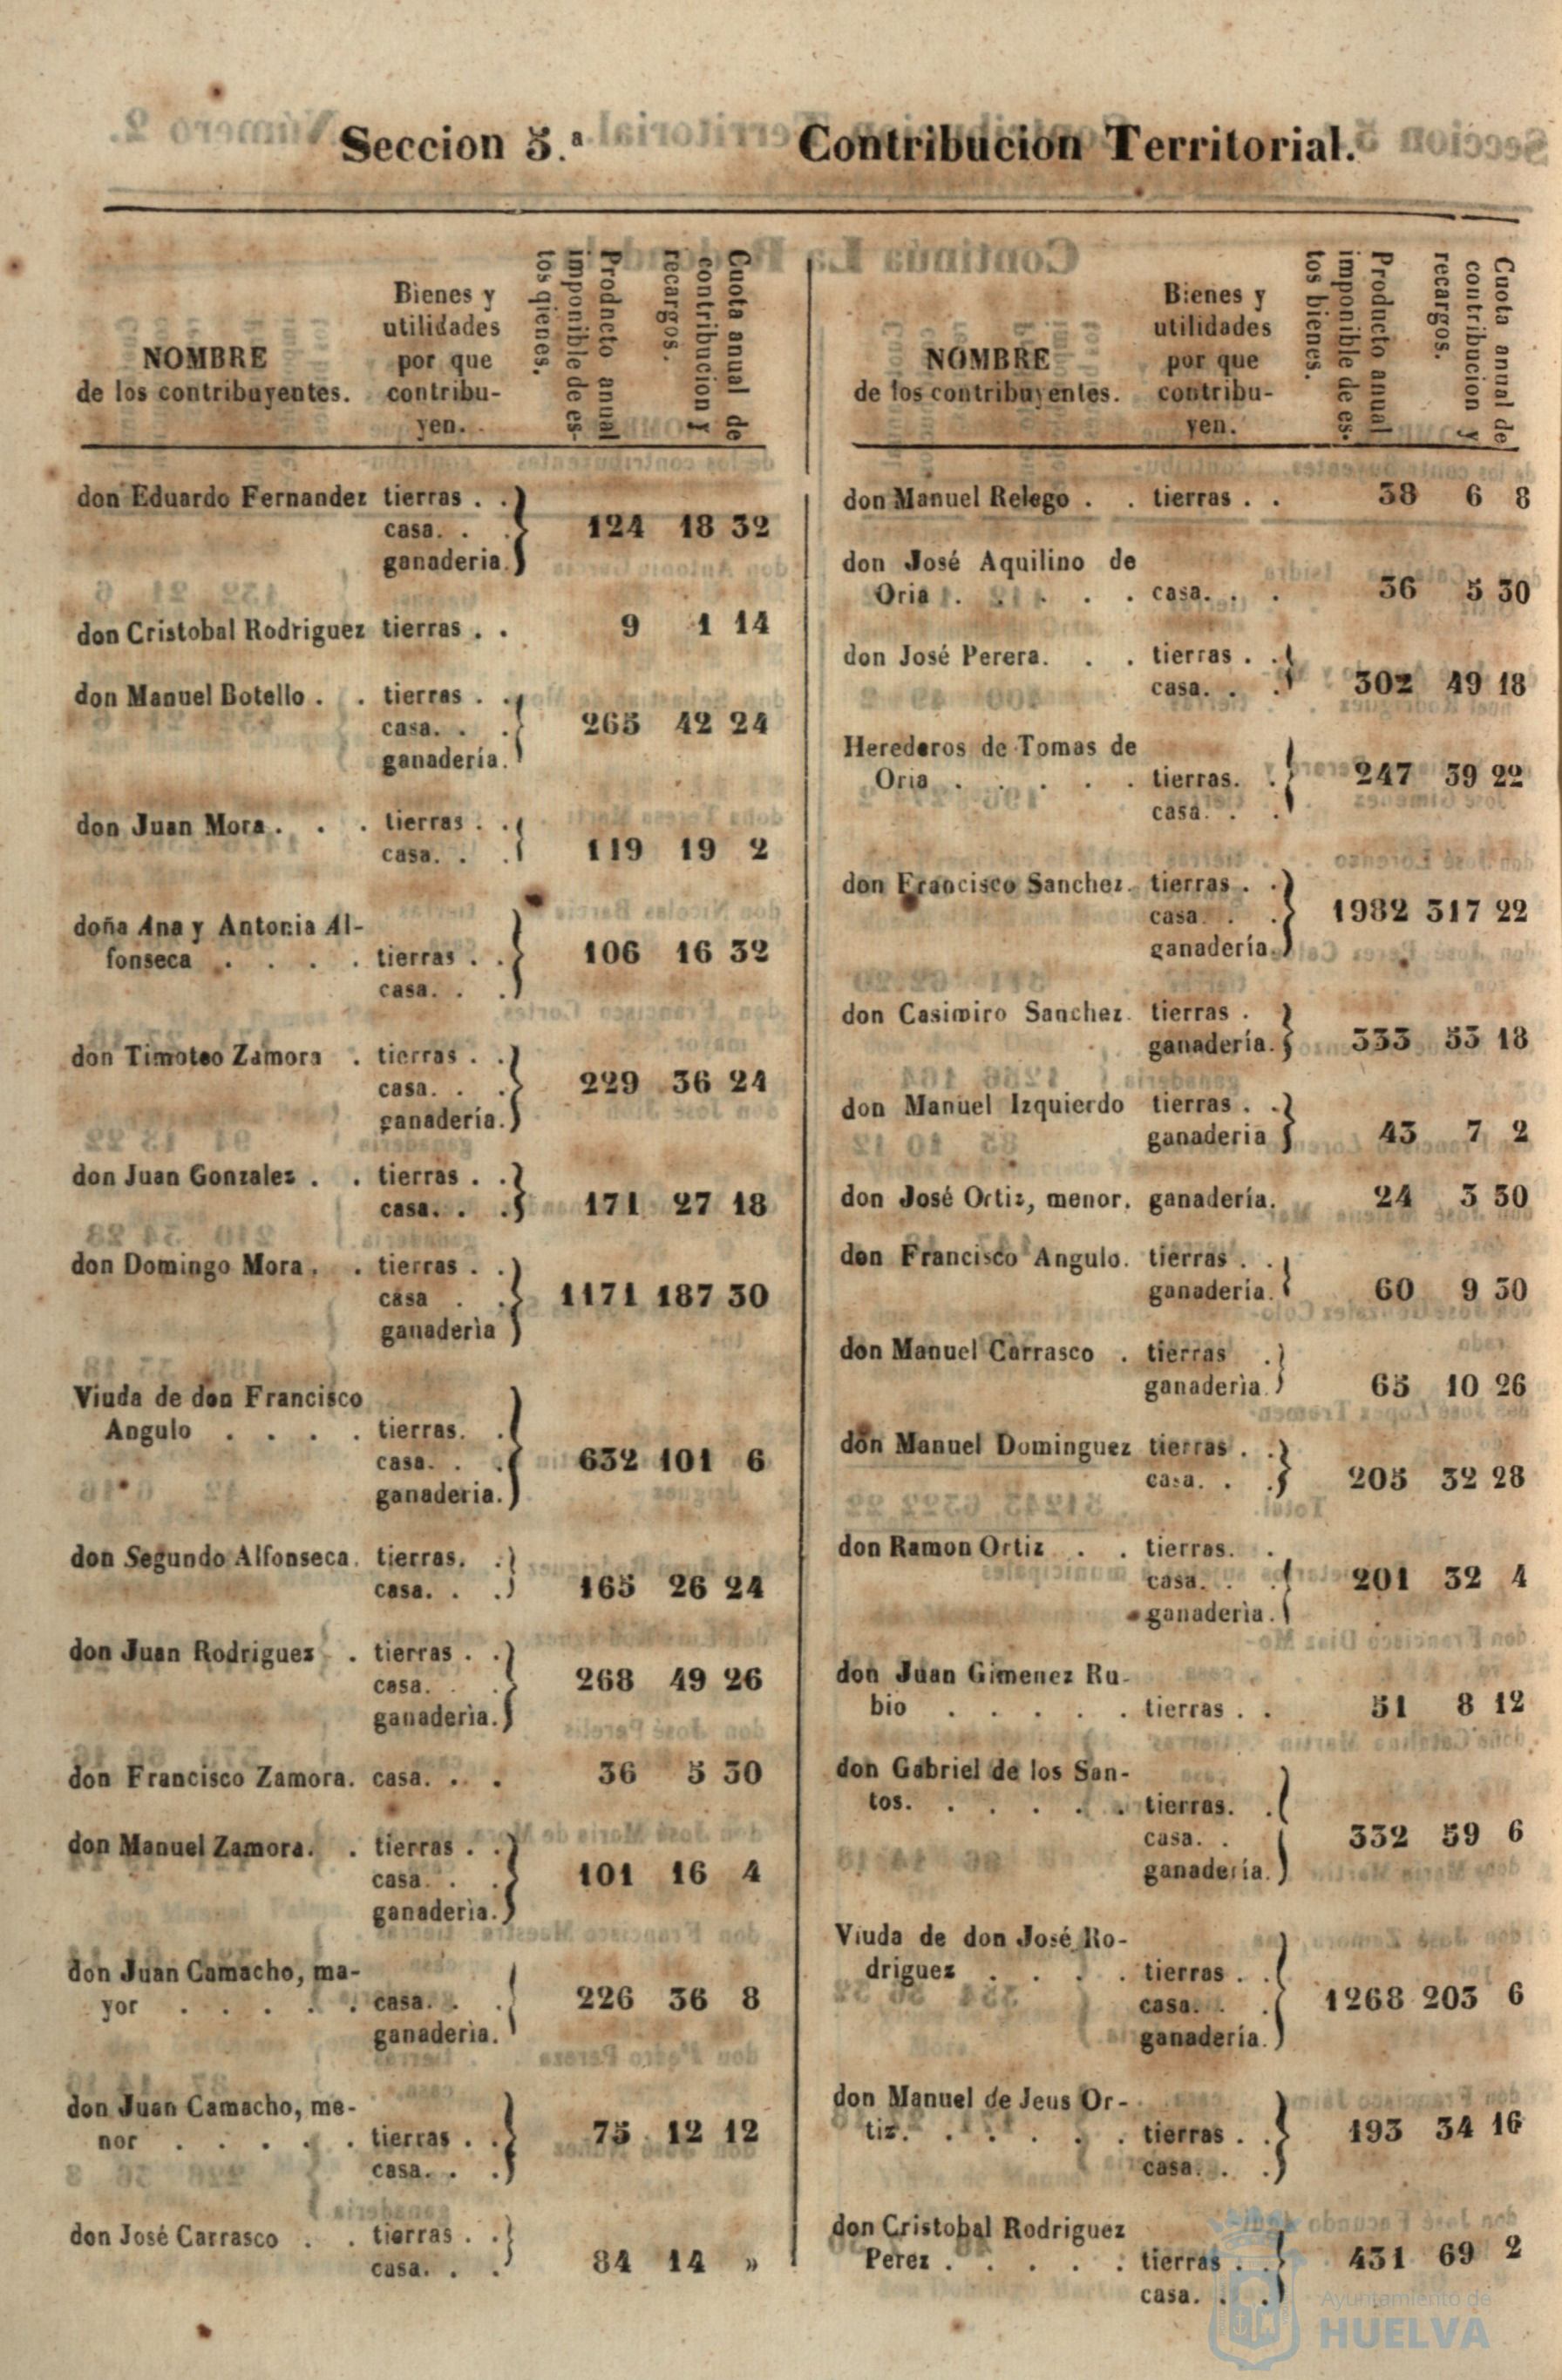 Seccion 5.ª Contribucion Territorial.
NOMBRE
de los contribuyentes.
Bienes y
utilidades
por que
contribu-
yen.
Producto anual
imponible de es-
tos bienes.
Cuota anual de
contribucion y
recargos.
don Eduardo Fernandez tierras . .
casa. . . 124 18 32
ganaderia.
don Cristobal Rodriguez tierras . . 9 1 14
don Manuel Botello . . tierras . .
casa. . . 265 42 24
ganadería.
don Juan Mora . . . tierras . .
casa. . . 119 19 2
doña Ana y Antonia Al-
fonseca . . . . tierras . . 106 16 32
casa. . .
don Timoteo Zamora . tierras . .
casa. . . 229 36 24
ganadería.
don Juan Gonzalez . . tierras . .
casa. . . 171 27 18
don Domingo Mora . . tierras . .
casa . . 1171 187 30
ganaderia
Viuda de don Francisco
Angulo . . . . tierras. .
casa. . . 632 101 6
ganaderia.
don Segundo Alfonseca. tierras. .
casa. . . 165 26 24
don Juan Rodriguez . tierras . .
casa. . . 268 49 26
ganaderia.
don Francisco Zamora. casa. . . 36 5 30
don Manuel Zamora. . tierras . .
casa. . . 101 16 4
ganaderia.
don Juan Camacho, ma-
yor . . . . . casa. . . 226 36 8
ganaderia.
don Juan Camacho, me-
nor . . . . . tierras . . 75 12 12
casa. . .
don José Carrasco . . tierras . .
casa. . . 84 14 »
NOMBRE
de los contribuyentes.
Bienes y
utilidades
por que
contribu-
yen.
Producto anual
imponible de es-
tos bienes.
Cuota anual de
contribucion y
recargos.
don Manuel Relego . . tierras . . 38 6 8
don José Aquilino de
Oria . . . . . casa. . . 36 5 30
don José Perera. . . tierras . .
casa. . . 302 49 18
Herederos de Tomas de
Oria . . . . . tierras. . 247 39 22
casa. . .
don Francisco Sanchez. tierras . .
casa. . . 1982 317 22
ganadería.
don Casimiro Sanchez. tierras .
ganadería. 333 53 18
don Manuel Izquierdo tierras . .
ganaderia 43 7 2
don José Ortiz, menor. ganadería. 24 3 30
don Francisco Angulo. tierras . .
ganadería. 60 9 30
don Manuel Carrasco . tierras .
ganaderia. 65 10 26
don Manuel Dominguez tierras . .
casa. . . 205 32 28
don Ramon Ortiz . . tierras. .
casa. . . 201 32 4
ganaderia.
don Juan Gimenez Ru-
bio . . . . . tierras . . 51 8 12
don Gabriel de los San-
tos. . . . . . tierras. .
casa. . 332 59 6
ganadería.
Viuda de don José Ro-
driguez . . . . tierras . .
casa. . . 1268 203 6
ganadería.
don Manuel de Jeus Or-
tiz. . . . . . tierras . . 193 34 16
casa. . .
don Cristobal Rodriguez
Perez . . . . . tierras . . 431 69 2
casa. . .
Ayuntamiento de
HUELVA